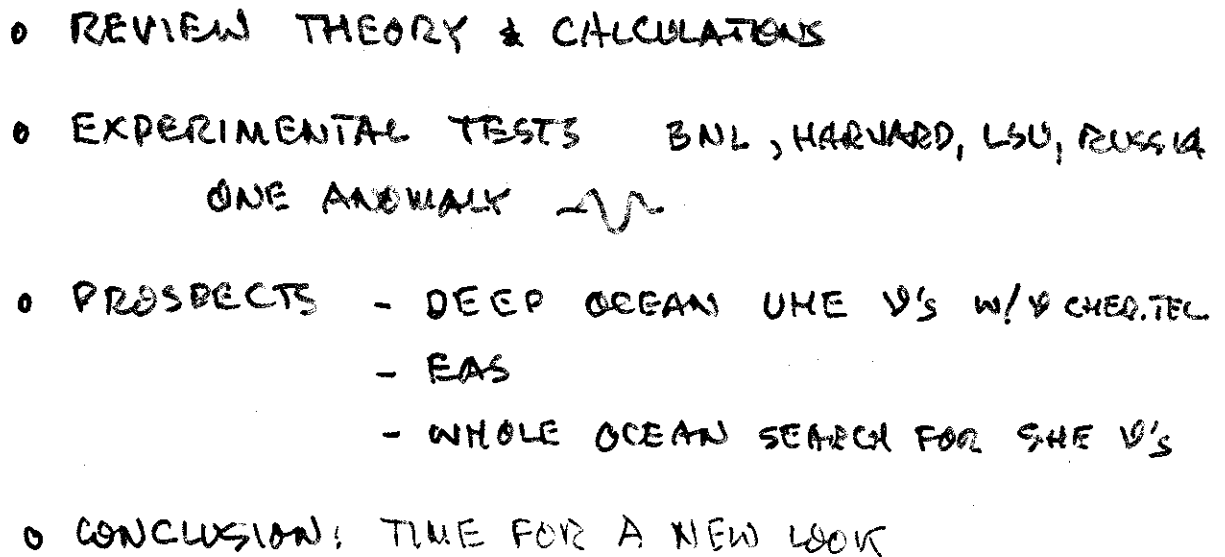 • REVIEW THEORY & CALCULATIONS
• EXPERIMENTAL TESTS BNL, HARVARD, LSU, RUSSIA
ONE ANOMALY
• PROSPECTS - DEEP OCEAN UHE ν's W/ν CHER. TEL.
- EAS
- WHOLE OCEAN SEARCH FOR SHE ν's
• CONCLUSION: TIME FOR A NEW LOOK